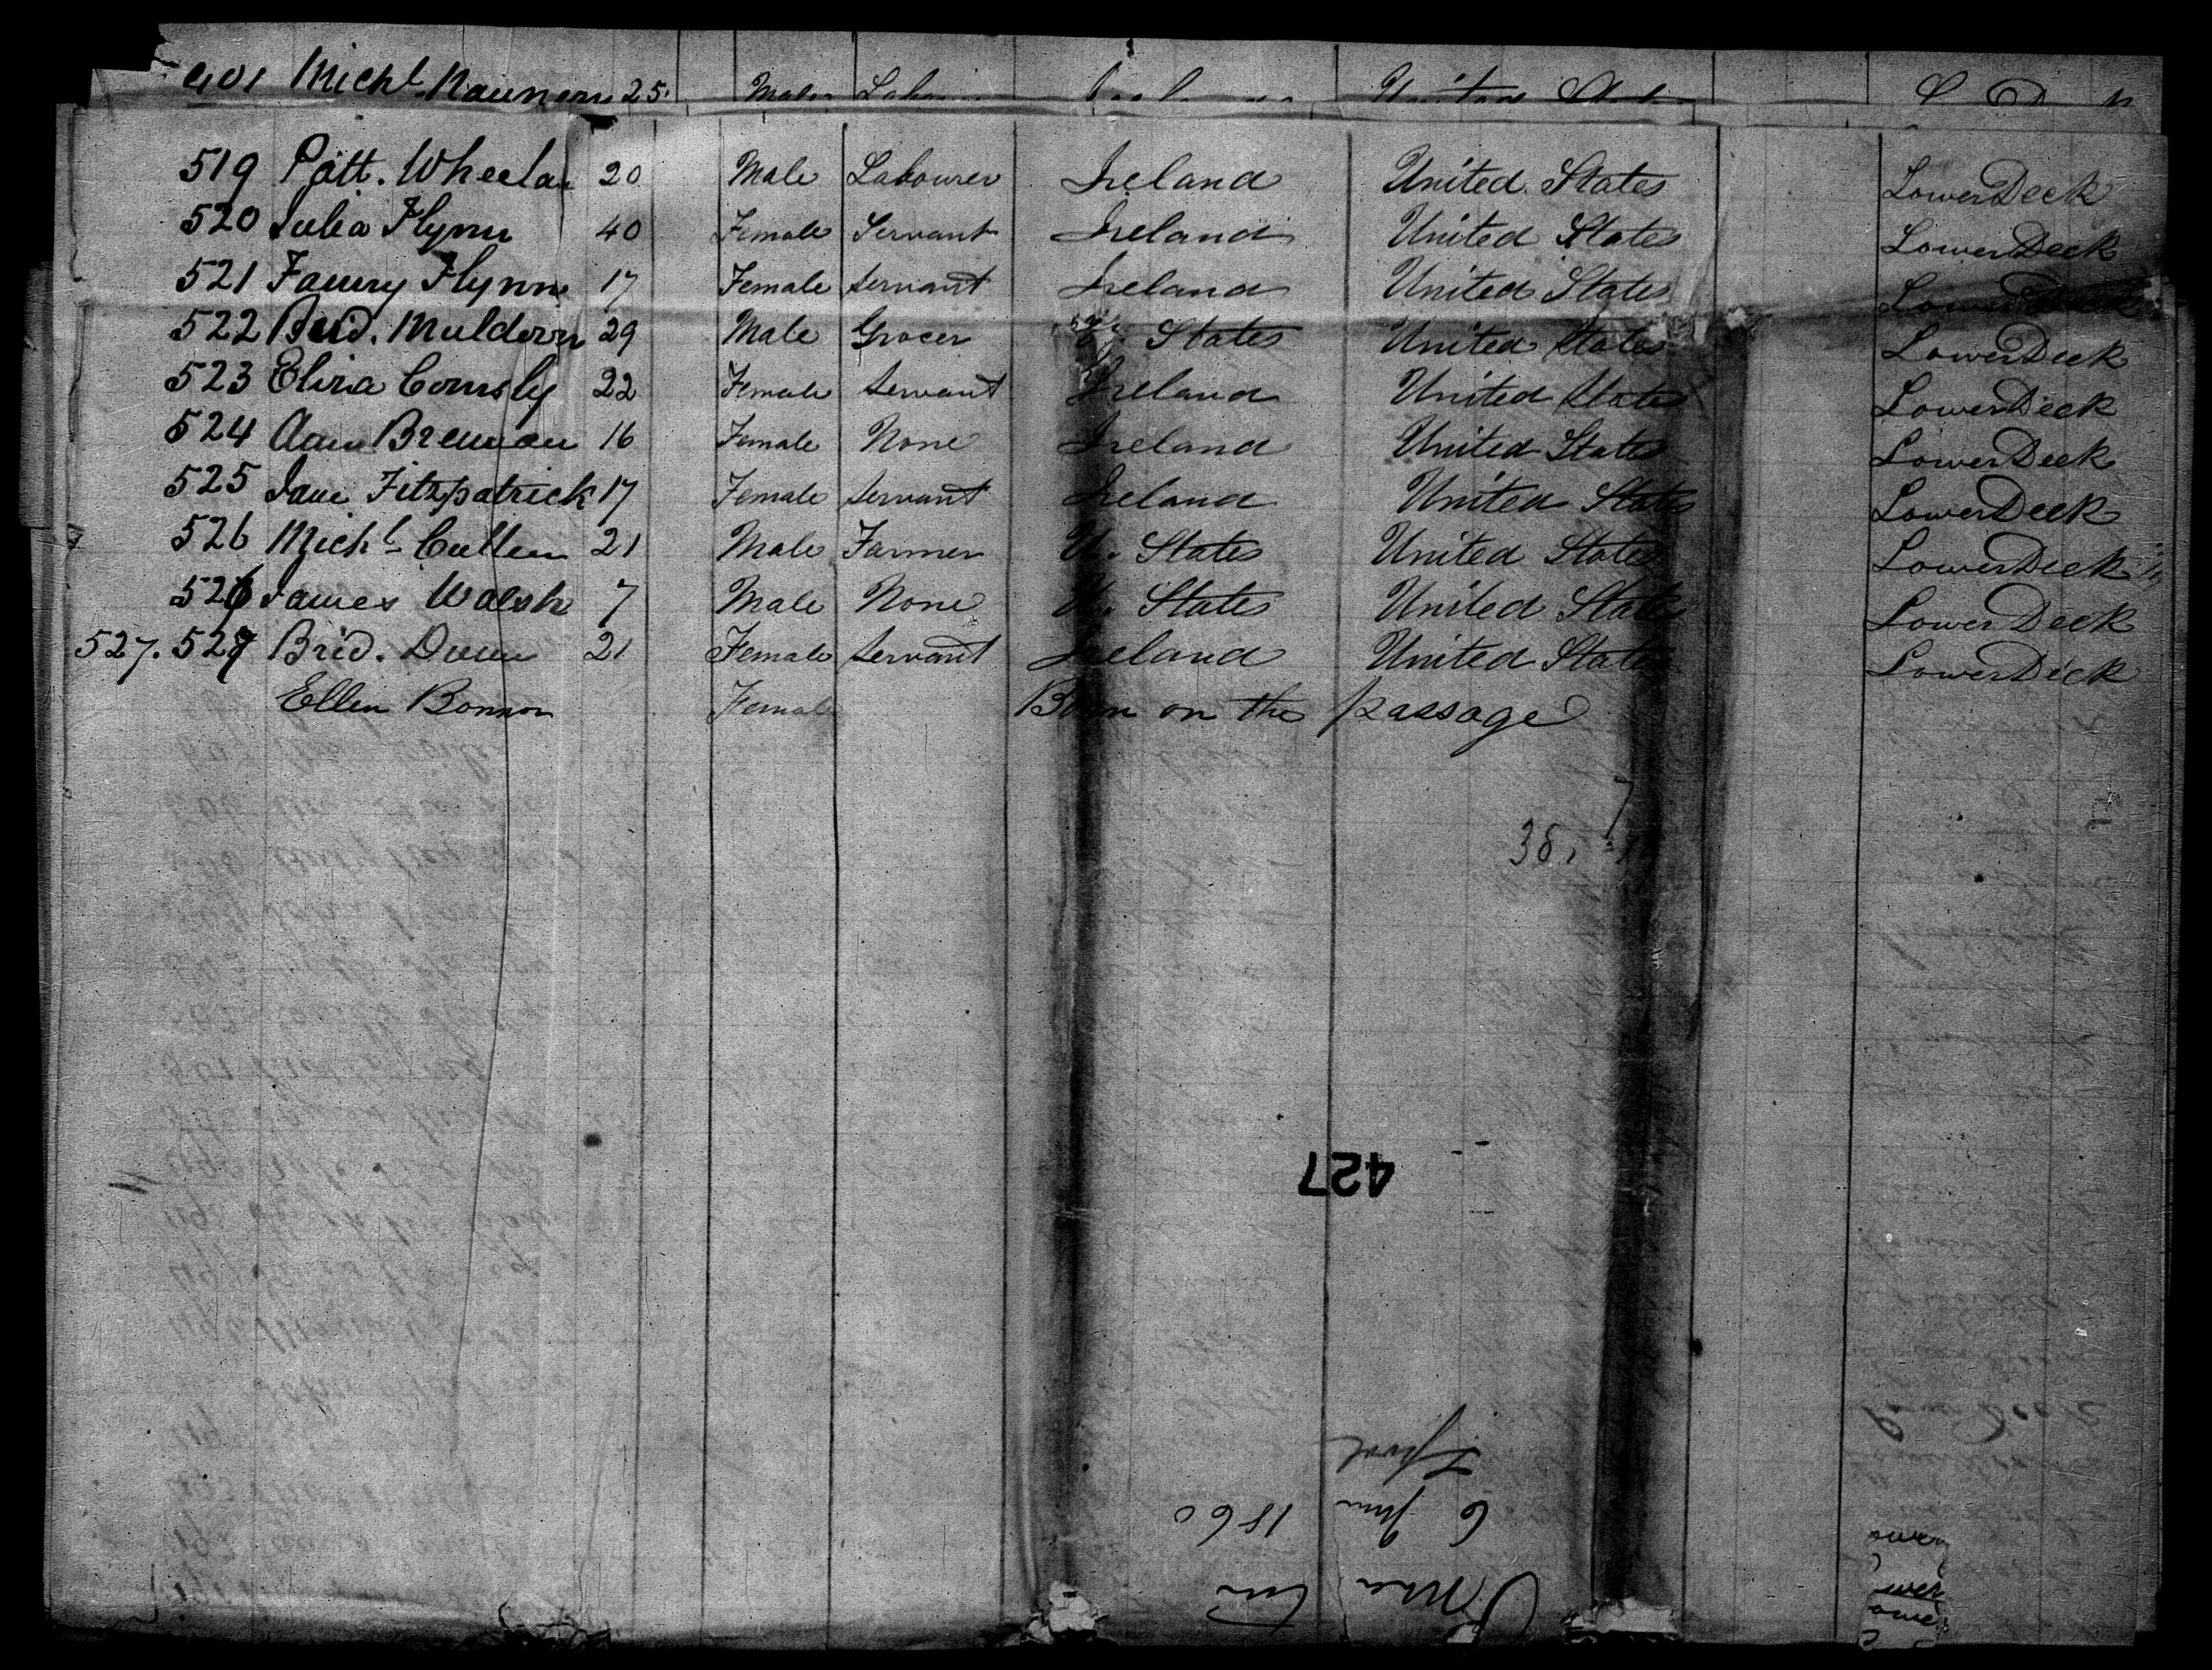 401 Michl 25 Male United States
519 Patt. Wheelan 20 Male Labourer Ireland United States Lower Deck
520 Julia Flynn 40 Female Servant Ireland United States Lower Deck
521 Fanny Flynn 17 Female Servant Ireland United States Lower Deck
522 29 Male Grocer U. States United States Lower Deck
523 Eliza 22 Female Servant Ireland United States Lower Deck
524 Ann Brennan 16 Female None Ireland United States Lower Deck
525 Jane Fitzpatrick 17 Female Servant Ireland United States Lower Deck
526 Michl Cullen 21 Male Farmer U. States United States Lower Deck
526 James Walsh 7 Male None U. States United States Lower Deck
527. 527 Brid. Dunn 21 Female Servant Ireland United States Lower Deck
Ellen Bonnor Female Born on the passage
7
38
427
6 June 1860